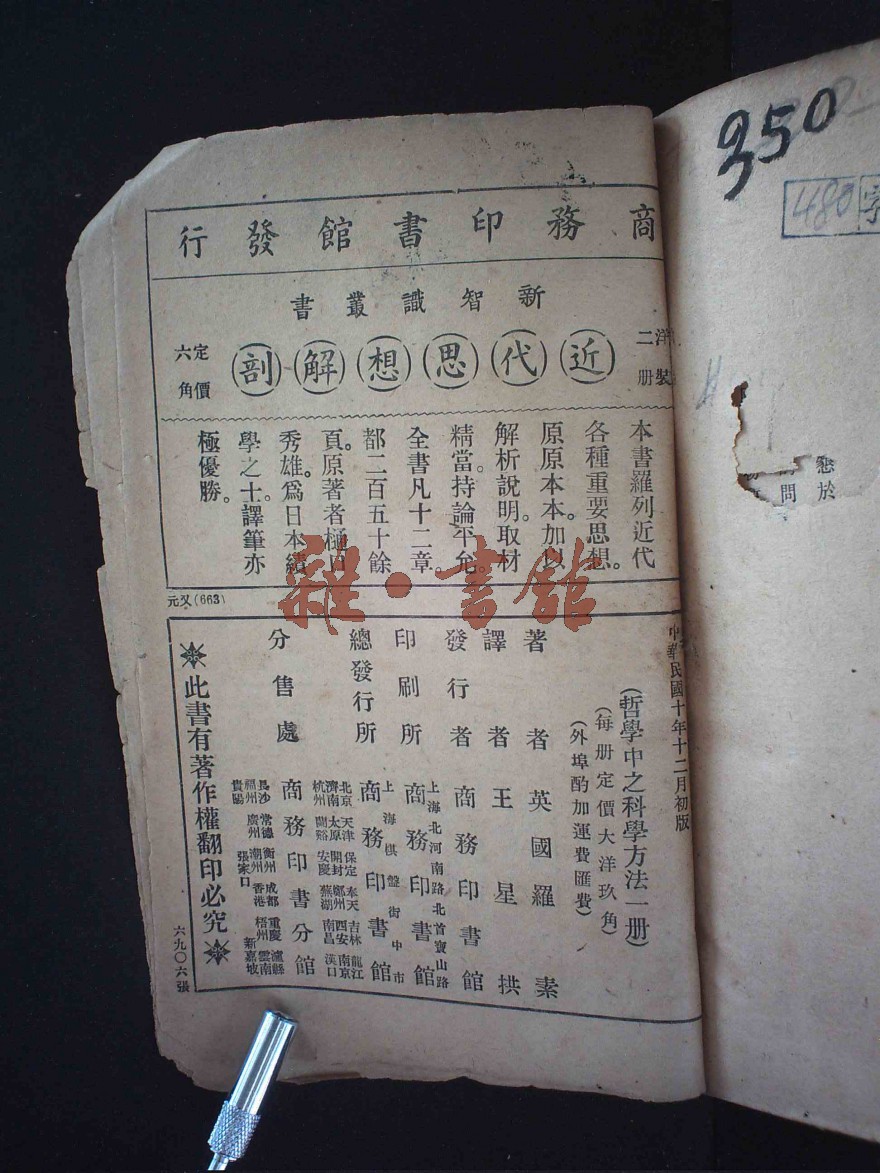 商務印書館發行
新智識叢書
洋裝二册
近代思想解剖
定價六角
本書羅列近代
各種重要思想。
原原本本。加以
解析說明。取材
精當。持論平允。
全書凡十二章。
都二百五十餘
頁。原著者樋口
秀雄。爲日本績
學之士。譯筆亦
極優勝。
元又(663)
中華民國十年十二月初版
(哲學中之科學方法一册)
(每册定價大洋玖角)
(外埠酌加運費匯費)
著者 英國羅素
譯者 王星拱
發行者 商務印書館
印刷所 上海北河南路北首寶山路 商務印書館
總發行所 上海棋盤街中市 商務印書館
分售處 商務印書分館
北京 天津 保定 奉天 吉林 龍江
濟南 太原 開封 鄭州 西安 南京
杭州 蘭谿 安慶 蕪湖 南昌 漢口
長沙 常德 衡州 成都 重慶 瀘縣
福州 廣州 潮州 香港 梧州 雲南
貴陽 張家口 新嘉坡
此書有著作權翻印必究
六九〇六張
雜·書館
350
480
字
懇於
問